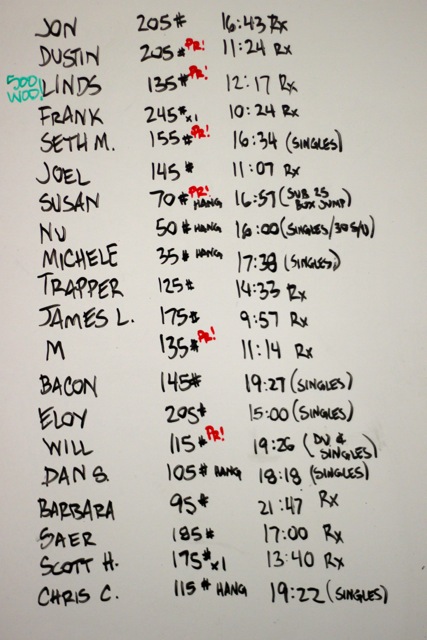 JON 205# 16:43 Rx
DUSTIN 205# PR! 11:24 Rx
500! WOO! LINDS 135# PR! 12:17 Rx
FRANK 245# x1 10:24 Rx
SETH M. 155# PR! 16:34 (SINGLES)
JOEL 145# 11:07 Rx
SUSAN 70# PR! HANG 16:57 (SUB 25 BOX JUMP)
NU 50# HANG 16:00 (SINGLES/30 S/U)
MICHELE 35# HANG 17:38 (SINGLES)
TRAPPER 125# 14:33 Rx
JAMES L. 175# 9:57 Rx
M 135# PR! 11:14 Rx
BACON 145# 19:27 (SINGLES)
ELOY 205# 15:00 (SINGLES)
WILL 115# PR! 19:26 (DU & SINGLES)
DAN S. 105# HANG 18:18 (SINGLES)
BARBARA 95# 21:47 Rx
SAER 185# 17:00 Rx
SCOTT H. 175# x1 13:40 Rx
CHRIS C. 115# HANG 19:22 (SINGLES)